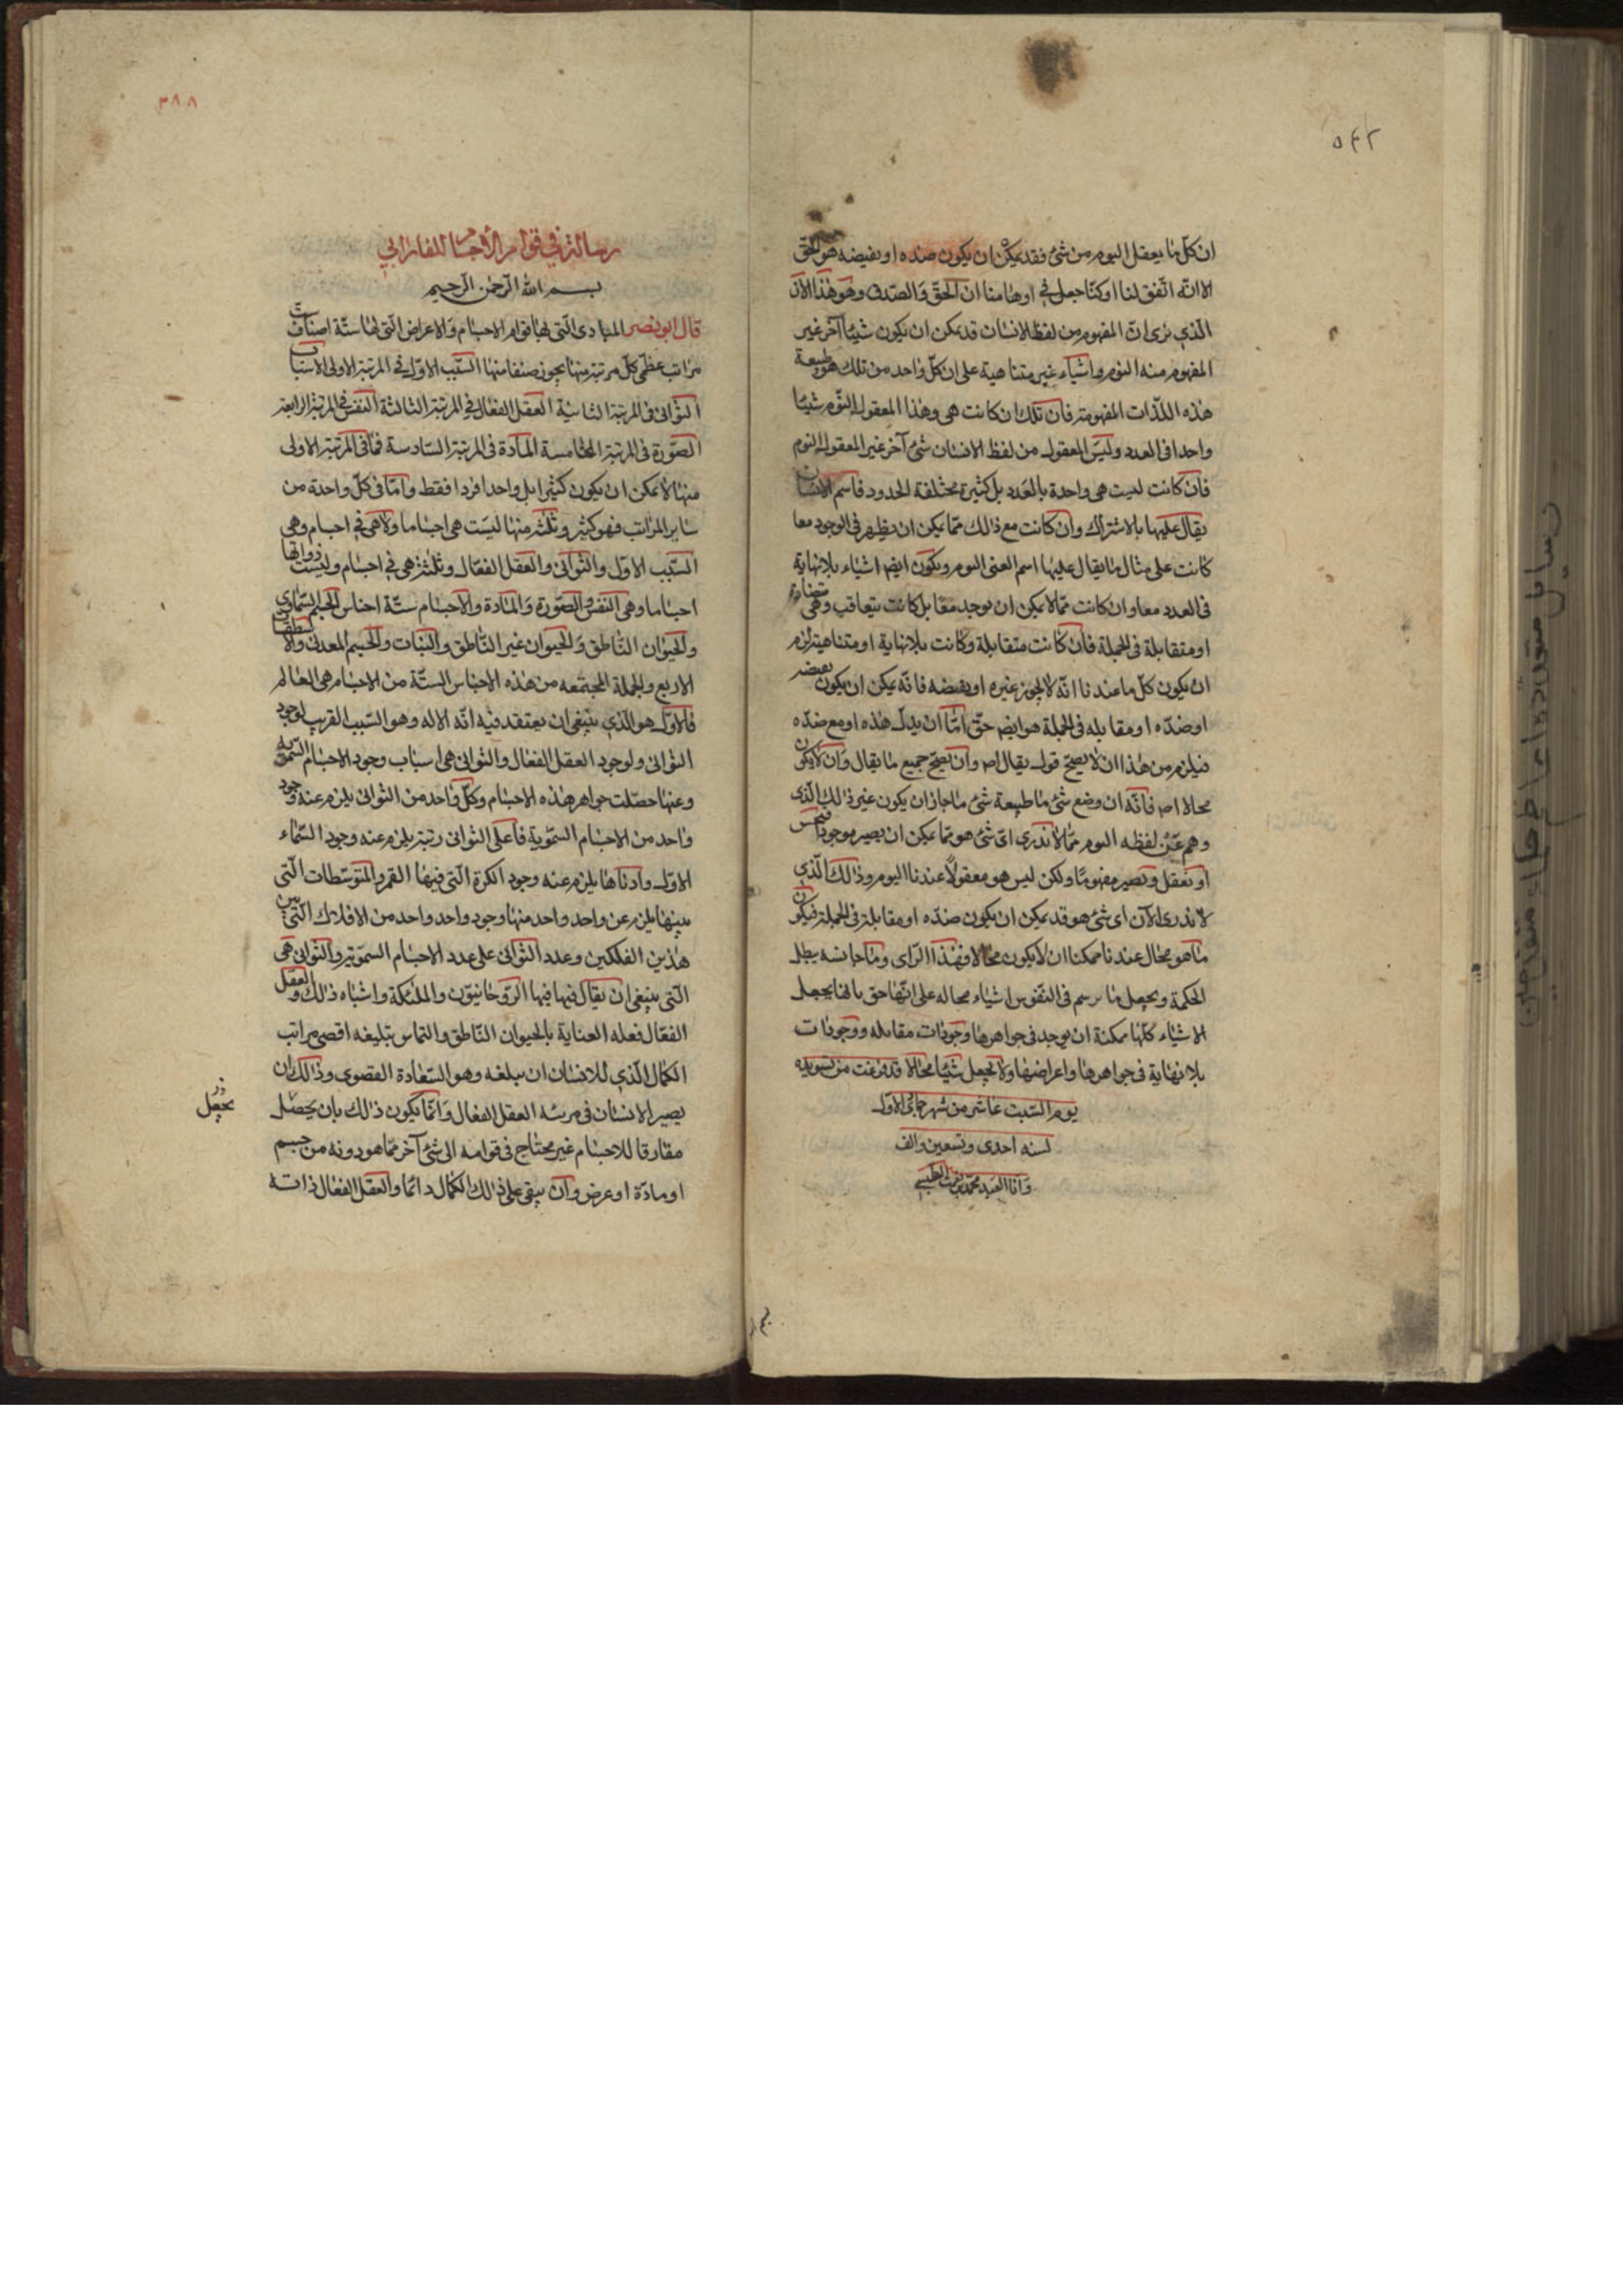 ٥٤٢
ان كلّ ما يعقل اليوم من شئ فقد يمكن ان يكون ضده او نقيضه هو الحقّ
الا انّه اتّفق لنا او كنّا جعل في اوهامنا انّ الحقّ والصّدق وهو هذا الآن
الّذي نرى انّ المفهوم من لفظ الانسان قد يمكن ان يكون شيئا آخر غير
المفهوم منه اليوم واشياء غير متناهية على ان كلّ واحد من تلك هو طبيعة
هذه الذّات المفهومة فان تلك ان كانت هى وهذا المعقول اليوم شيئا
واحدا فى العدد وليس المعقول من لفظ الانسان شئ آخر غير المعقول اليوم
فان كانت ليست هى واحدة بالعدد بل كثيرة مختلفة الحدود فاسم الانسان
يقال عليها بالاشتراك وان كانت مع ذالك ممّا يمكن ان يظهر فى الوجود معا
كانت على مثال ما يقال عليها اسم العين اليوم ويكون ايضا اشياء بلا نهاية
فى العدد معا وان كانت ممّا لا يمكن ان توجد معًا بل كانت يتعاقب وهى متضادة
او متقابلة فى الجملة فان كانت متقابلة وكانت بلا نهاية او متناهية لزم
ان يكون كلّ ما عندنا انّه لا يجوز غيره او نقيضه فانّه يمكن ان يكون نقيضه
او ضدّه او مقابله فى الجملة هو ايضا حقّ امّا ان بدل هذه او مع ضدّه
فيلزم من هذا ان لا يصحّ قول يقال اصلا وان يصحّ جميع ما يقال وان لا يكون
محالا اصلا فانّه ان وضع شئ ما طبيعة شئ ما جاز ان يكون غير ذالك الّذى
وهم عن لفظه اليوم ممّا لا ندرى اىّ شئ هو ممّا يمكن ان يصير موجودا فيحس
او يعقل ويصير مفهومًا ولكن ليس هو معقولًا عندنا اليوم وذالك الّذي
لا ندرى الآن اى شئ هو قد يمكن ان يكون ضدّه او مقابله فى الجملة فيكون
ما هو محال عندنا ممكنا ان لا يكون محالا فهذا الرّاى وما جانسه يبطل
الحكمة ويجعل ما يرسم فى النّفوس اشياء محاله على انّها حق بانها يجعل
الاشياء كلّها ممكنة ان يوجد فى جواهرها وجودات مقابله ووجودات
بلا نهاية فى جواهرها واعراضها ولا يجعل شيئا محالا قد فرغت من تسويده
يوم السّبت عاشر من شهر جمادى الاوّل
لسنه احدى وتسعين والف
وانا العبد محمّد بن الطبيب
٣٨٨
رسالة في قوام الاجسام للفارابي
بسم الله الرّحمن الرّحيم
قال ابو نصر المبادى الّتى لها قوام الاجسام والاعراض الّتى لها ستّة اصناف
مراتب عظمى كلّ مرتبة منها يحوز صنفا منها السّبب الاوّل في المرتبة الاولى الاسباب
الثّوانى فى المرتبة الثانية العقل الفعّال في المرتبة الثالثة النفس في المرتبة الرابعة
الصّورة فى المرتبة الخامسة المادّة فى المرتبة السّادسة فما فى المرتبة الاولى
منها لا يمكن ان يكون كثيرا بل واحدا فردا فقط وامّا فى كلّ واحدة من
ساير المراتب فهو كثير وثلثة منها ليست هى اجساما ولا هى في اجسام وهى
السّبب الاوّل والثّوانى والعقل الفعّال وثلثة هى في اجسام وليست ذواتها
اجساما وهى النفس والصّورة والمادة والاجسام ستّة اجناس الجسم السّماوى
والحيوان النّاطق والحيوان غير النّاطق والنّبات والجسم المعدنى والاسطقسات
الاربع والجملة المجتمعه من هذه الاجناس الستّة من الاجسام هى العالم
فالاوّل هو الّذي ينبغى ان يعتقد فيه انّه الاله وهو السّبب القريب لوجود
الثوانى ولوجود العقل الفعّال والثوانى هى اسباب وجود الاجسام السّموية
وعنها حصّلت جواهر هذه الاجسام وكلّ واحد من الثوانى يلزم عنه وجود
واحد من الاجسام السّموية فاعلى الثوانى رتبة يلزم عنه وجود السّماء
الاول وادناها يلزم عنه وجود الكرة الّتى فيها القمر والمتوسّطات الّتى
بينها يلزم عن واحد واحد منها وجود واحد واحد من الافلاك الّتى بين
هذين الفلكين وعدد الثّوانى على عدد الاجسام السّموية والثّوانى هى
الّتى ينبغى ان يقال فيها فيها الرّوحانيّون والملئكة واشباه ذالك والعقل
الفعّال فعله العناية بالحيوان النّاطق والتماس تبليغه اقصى مراتب
الكمال الّذي للانسان ان يبلغه وهو السّعادة القصوى وذالك ان
يصير الانسان فى مرتبة العقل الفعال وانّما يكون ذالك بان يحصّل
مفارقا للاجسام غير محتاج فى قوامه الى شئ آخر ممّا هو دونه من جسم
او مادّة او عرض وان يبقى على ذالك الكمال دائما والعقل الفعّال ذاته
يجعل